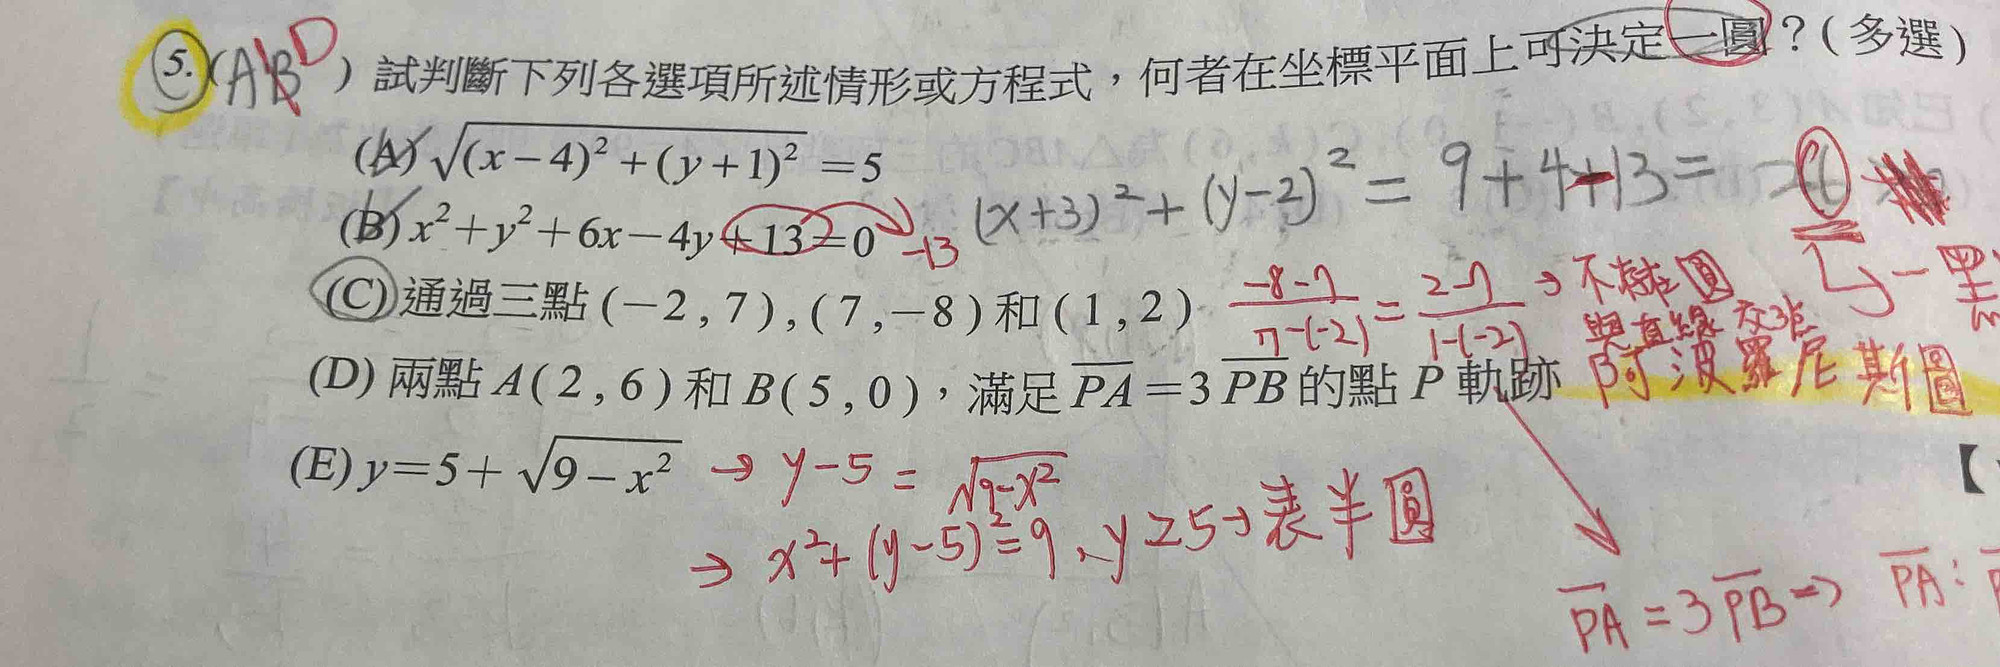 5. (ABD) 試判斷下列各選項所述情形或方程式，何者在坐標平面上可決定一圓？(多選)
(A) √((x－4)²＋(y＋1)²) ＝5
(B) x²＋y²＋6x－4y＋13＝0 -13 (x+3)²+(y-2)²= 9+4-13=
(C) 通過三點(－2 , 7) , (7 , －8)和(1 , 2) (-8-7)/(7-(-2)) = (2-7)/(1-(-2)) → 不存在圓
與直線
(D) 兩點A(2 , 6)和B(5 , 0)，滿足PA＝3PB的點P軌跡 阿波羅尼斯圓
(E) y＝5＋√(9－x²) → y-5 = √(9-x²)
→ x²+(y-5)²=9、y≥5→表半圓
PA=3PB→ PA: